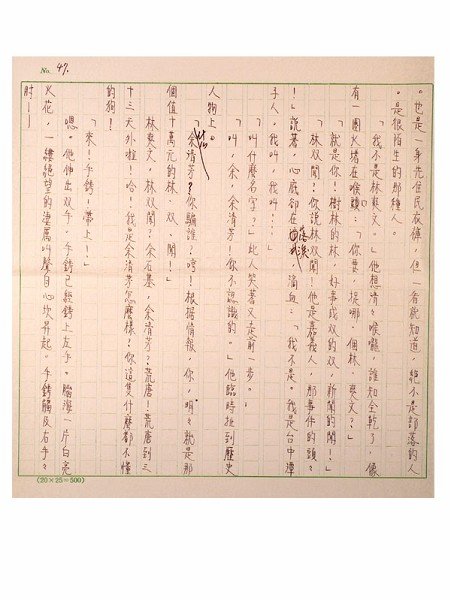 No. 47.
。也是一身先住民衣褲,但一看就知道,絕不是部落的人
。是很陌生的那種人。
「我不是林爽文。」他想清々喉嚨,誰知全乾了,像
有一團火堵在喉頭:「你要,捉哪一個林、爽文?」
「就是你!樹林的林,好事成双的双,新聞的聞!」
「林双聞?你說林双聞!他是嘉義人,那事件的頭々
!」說著,心底卻在落淚、滴血:「我不是。我是台中潭
子人,我叫,我叫:::」
「叫什麼名字?」此人笑著又走前一步。
「叫,余,余清芳,你不認識的。」他臨時扯到歷史
人物上。
「余清芳?你騙誰?哼!根据情報,你,明々就是那
個值十萬元的林、双、聞!」
林爽文,林双聞?余石基,余清芳??荒唐!荒唐到三
十三天外啦!哈!我是余清芳怎麼樣?你這隻什麼都不懂
的狗!
「來!手銬!帶上!」
嗯。他伸出双手。手銬已經銬上左手。腦海一片白亮
火花,一縷絕望的淒厲叫聲自心坎昇起。手銬觸及右手々
肘——
(20×25=500)